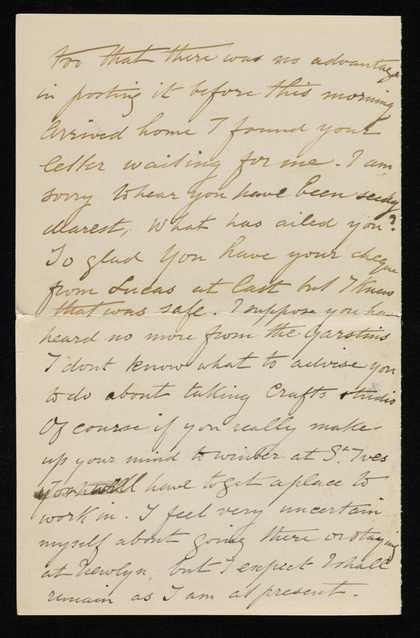 too that there was no advantage
in posting it before this morning
Arrived home I found your
letter waiting for me. I am
sorry to hear you have been seedy
dearest, what has ailed you?
So glad you have your cheque
from Lucas at last but I knew
that was safe. I suppose you have
heard no more from the Garstins
I dont know what to advise you
to do about taking Crafts studio
Of course if you really make
up your mind to winter at St. Ives
you will have to get a place to
work in. I feel very uncertain
myself about going there or staying
at Newlyn, but I expect I shall
remain as I am at present.